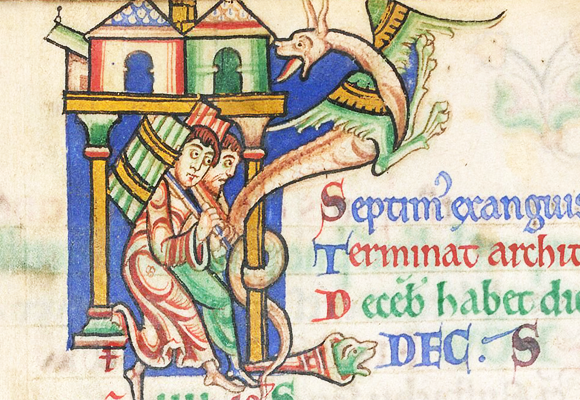 Septim' exanguis
Terminat archit
Deceb̄ habet du
DEC. S